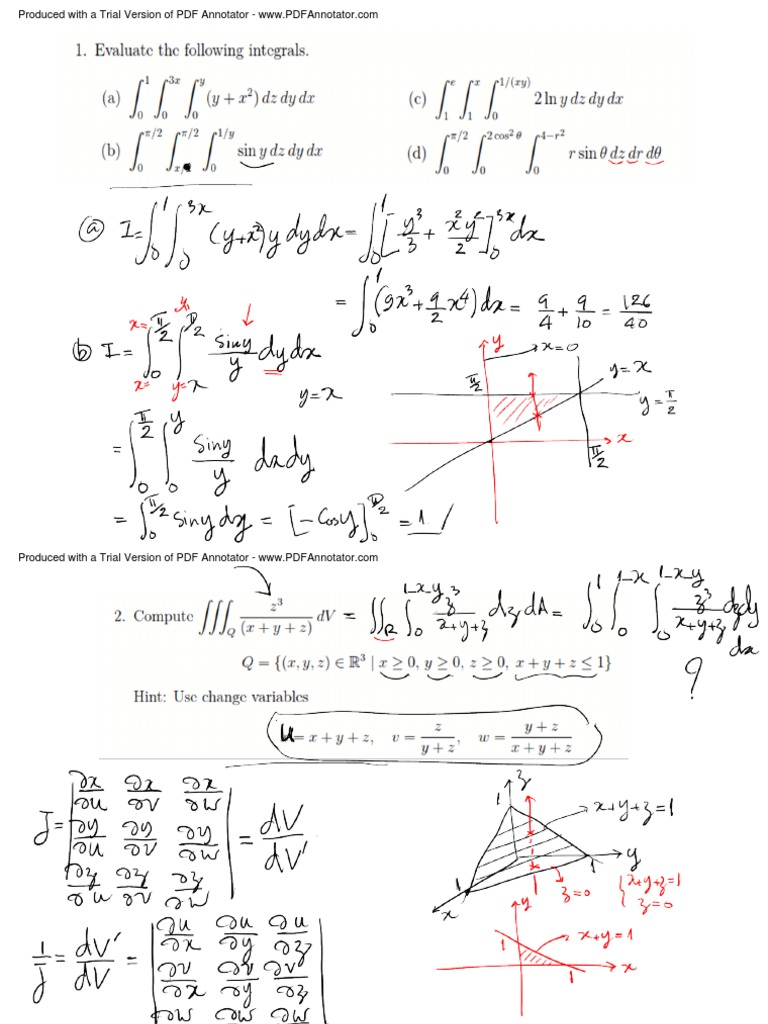 Produced with a Trial Version of PDF Annotator - www.PDFAnnotator.com
1. Evaluate the following integrals.
(a) ∫₀¹ ∫₀³ˣ ∫₀ʸ (y + x²) dz dy dx
(c) ∫₁ᵉ ∫₁ˣ ∫₀^{1/(xy)} 2 ln y dz dy dx
(b) ∫₀^{π/2} ∫ₓ^{π/2} ∫₀^{1/y} sin y dz dy dx
(d) ∫₀^{π/2} ∫₀^{2cos²θ} ∫₀^{4−r²} r sin θ dz dr dθ
ⓐ I = ∫₀¹ ∫₀³ˣ (y+x²)y dy dx = ∫₀¹ [y³/3 + x²y²/2]₀³ˣ dx
= ∫₀¹ (9x³ + 9/2 x⁴) dx = 9/4 + 9/10 = 126/40
ⓑ I = ∫₀^{π/2} ∫ₓ^{π/2} siny/y dy dx
x=
x=
y=
y=x
= ∫₀^{π/2} ∫₀ʸ siny/y dx dy
= ∫₀^{π/2} siny dy = [-cosy]₀^{π/2} = 1
y
x=0
y=x
π/2
y=π/2
x
π/2
Produced with a Trial Version of PDF Annotator - www.PDFAnnotator.com
2. Compute ∭_Q z³/(x + y + z) dV = ∬_R ∫₀^{1-x-y} z³/(x+y+z) dz dA = ∫₀¹ ∫₀^{1-x} ∫₀^{1-x-y} z³/(x+y+z) dz dy dx
?
Q = {(x, y, z) ∈ ℝ³ | x ≥ 0, y ≥ 0, z ≥ 0, x + y + z ≤ 1}
Hint: Use change variables
u = x + y + z, v = z/(y + z), w = (y + z)/(x + y + z)
J = | ∂x/∂u ∂x/∂v ∂x/∂w
∂y/∂u ∂y/∂v ∂y/∂w
∂z/∂u ∂z/∂v ∂z/∂w | = dV/dV'
z
1
x+y+z=1
y
1
1
x
z=0
{x+y+z=1
z=0
y
1
x+y=1
1
x
1/J = dV'/dV = | ∂u/∂x ∂u/∂y ∂u/∂z
∂v/∂x ∂v/∂y ∂v/∂z
∂w ∂w ∂w